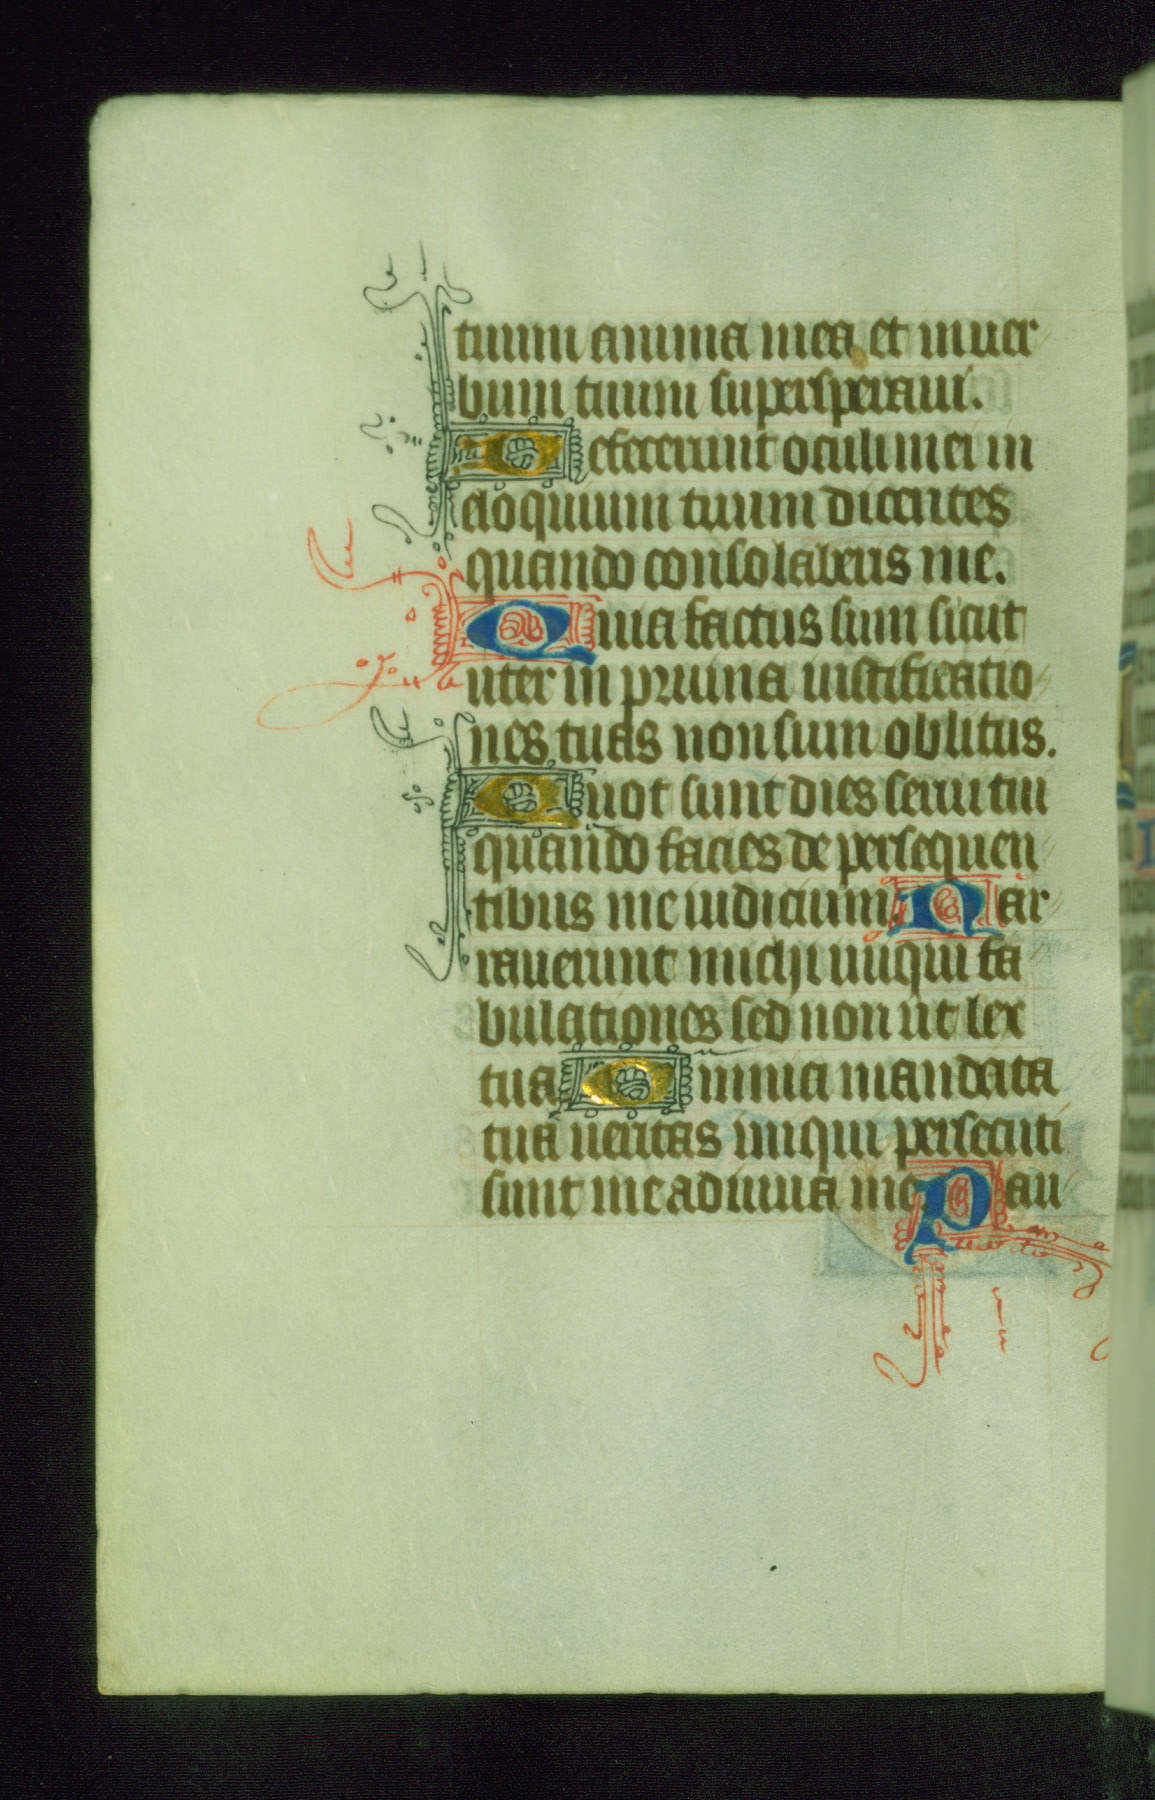 tuum anima mea et in uer
bum tuum supersperaui.
Defecerunt oculi mei in
eloquium tuum dicentes
quando consolaberis me.
Quia factus sum sicut
uter in pruina iustificatio
nes tuas non sum oblitus.
Quot sunt dies serui tui
quando facies de persequen
tibus me iudicium. Nar
rauerunt michi iniqui fa
bulationes sed non ut lex
tua. Omnia mandata
tua ueritas iniqui persecuti
sunt me adiuua me. Pau